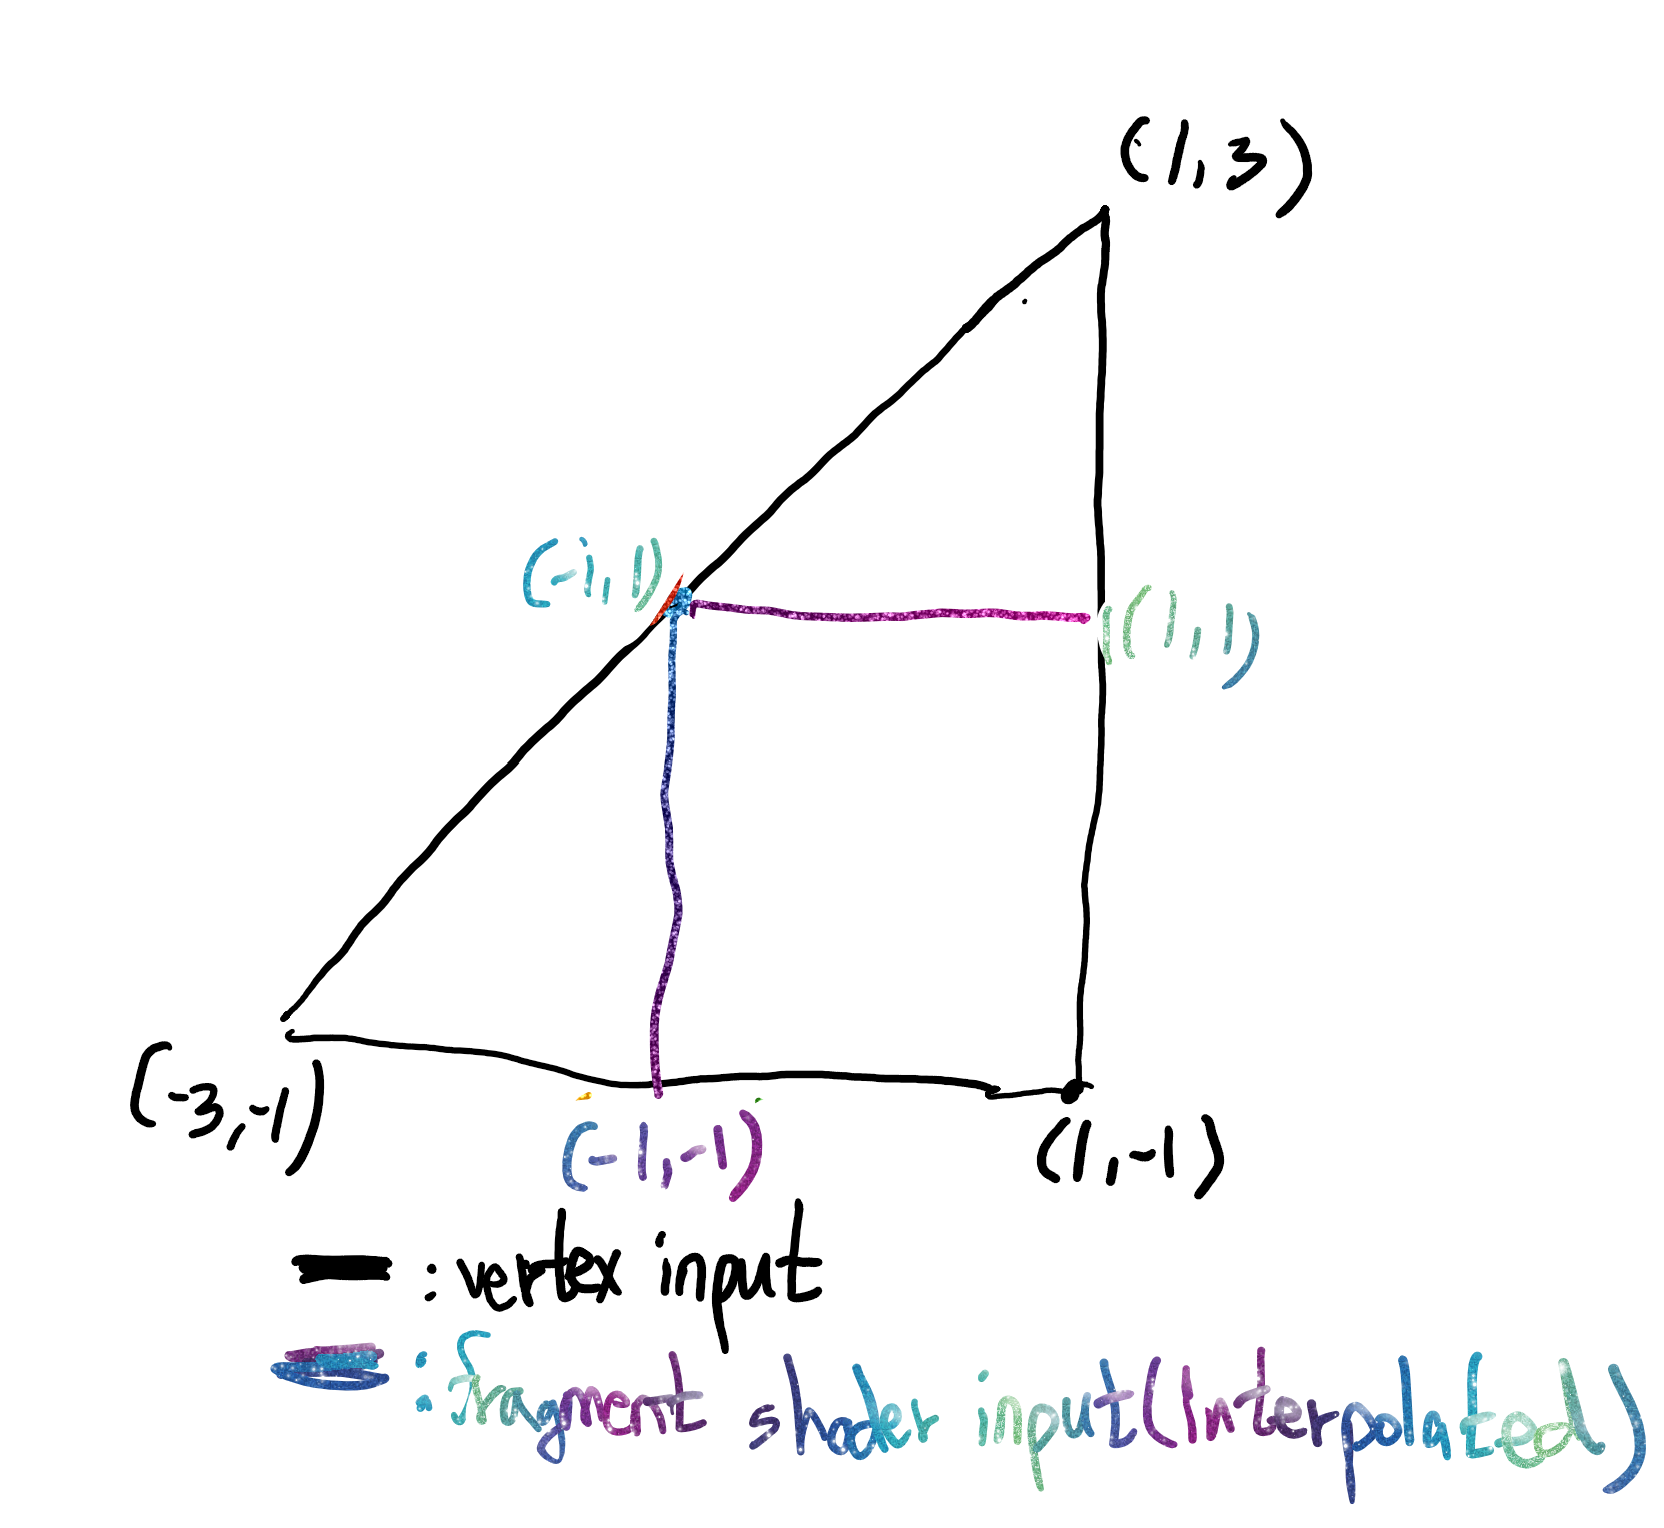 (1,3)
(-1,1)
(1,1)
(-3,-1)
(-1,-1)
(1,-1)
: vertex input
: fragment shader input(Interpolated)